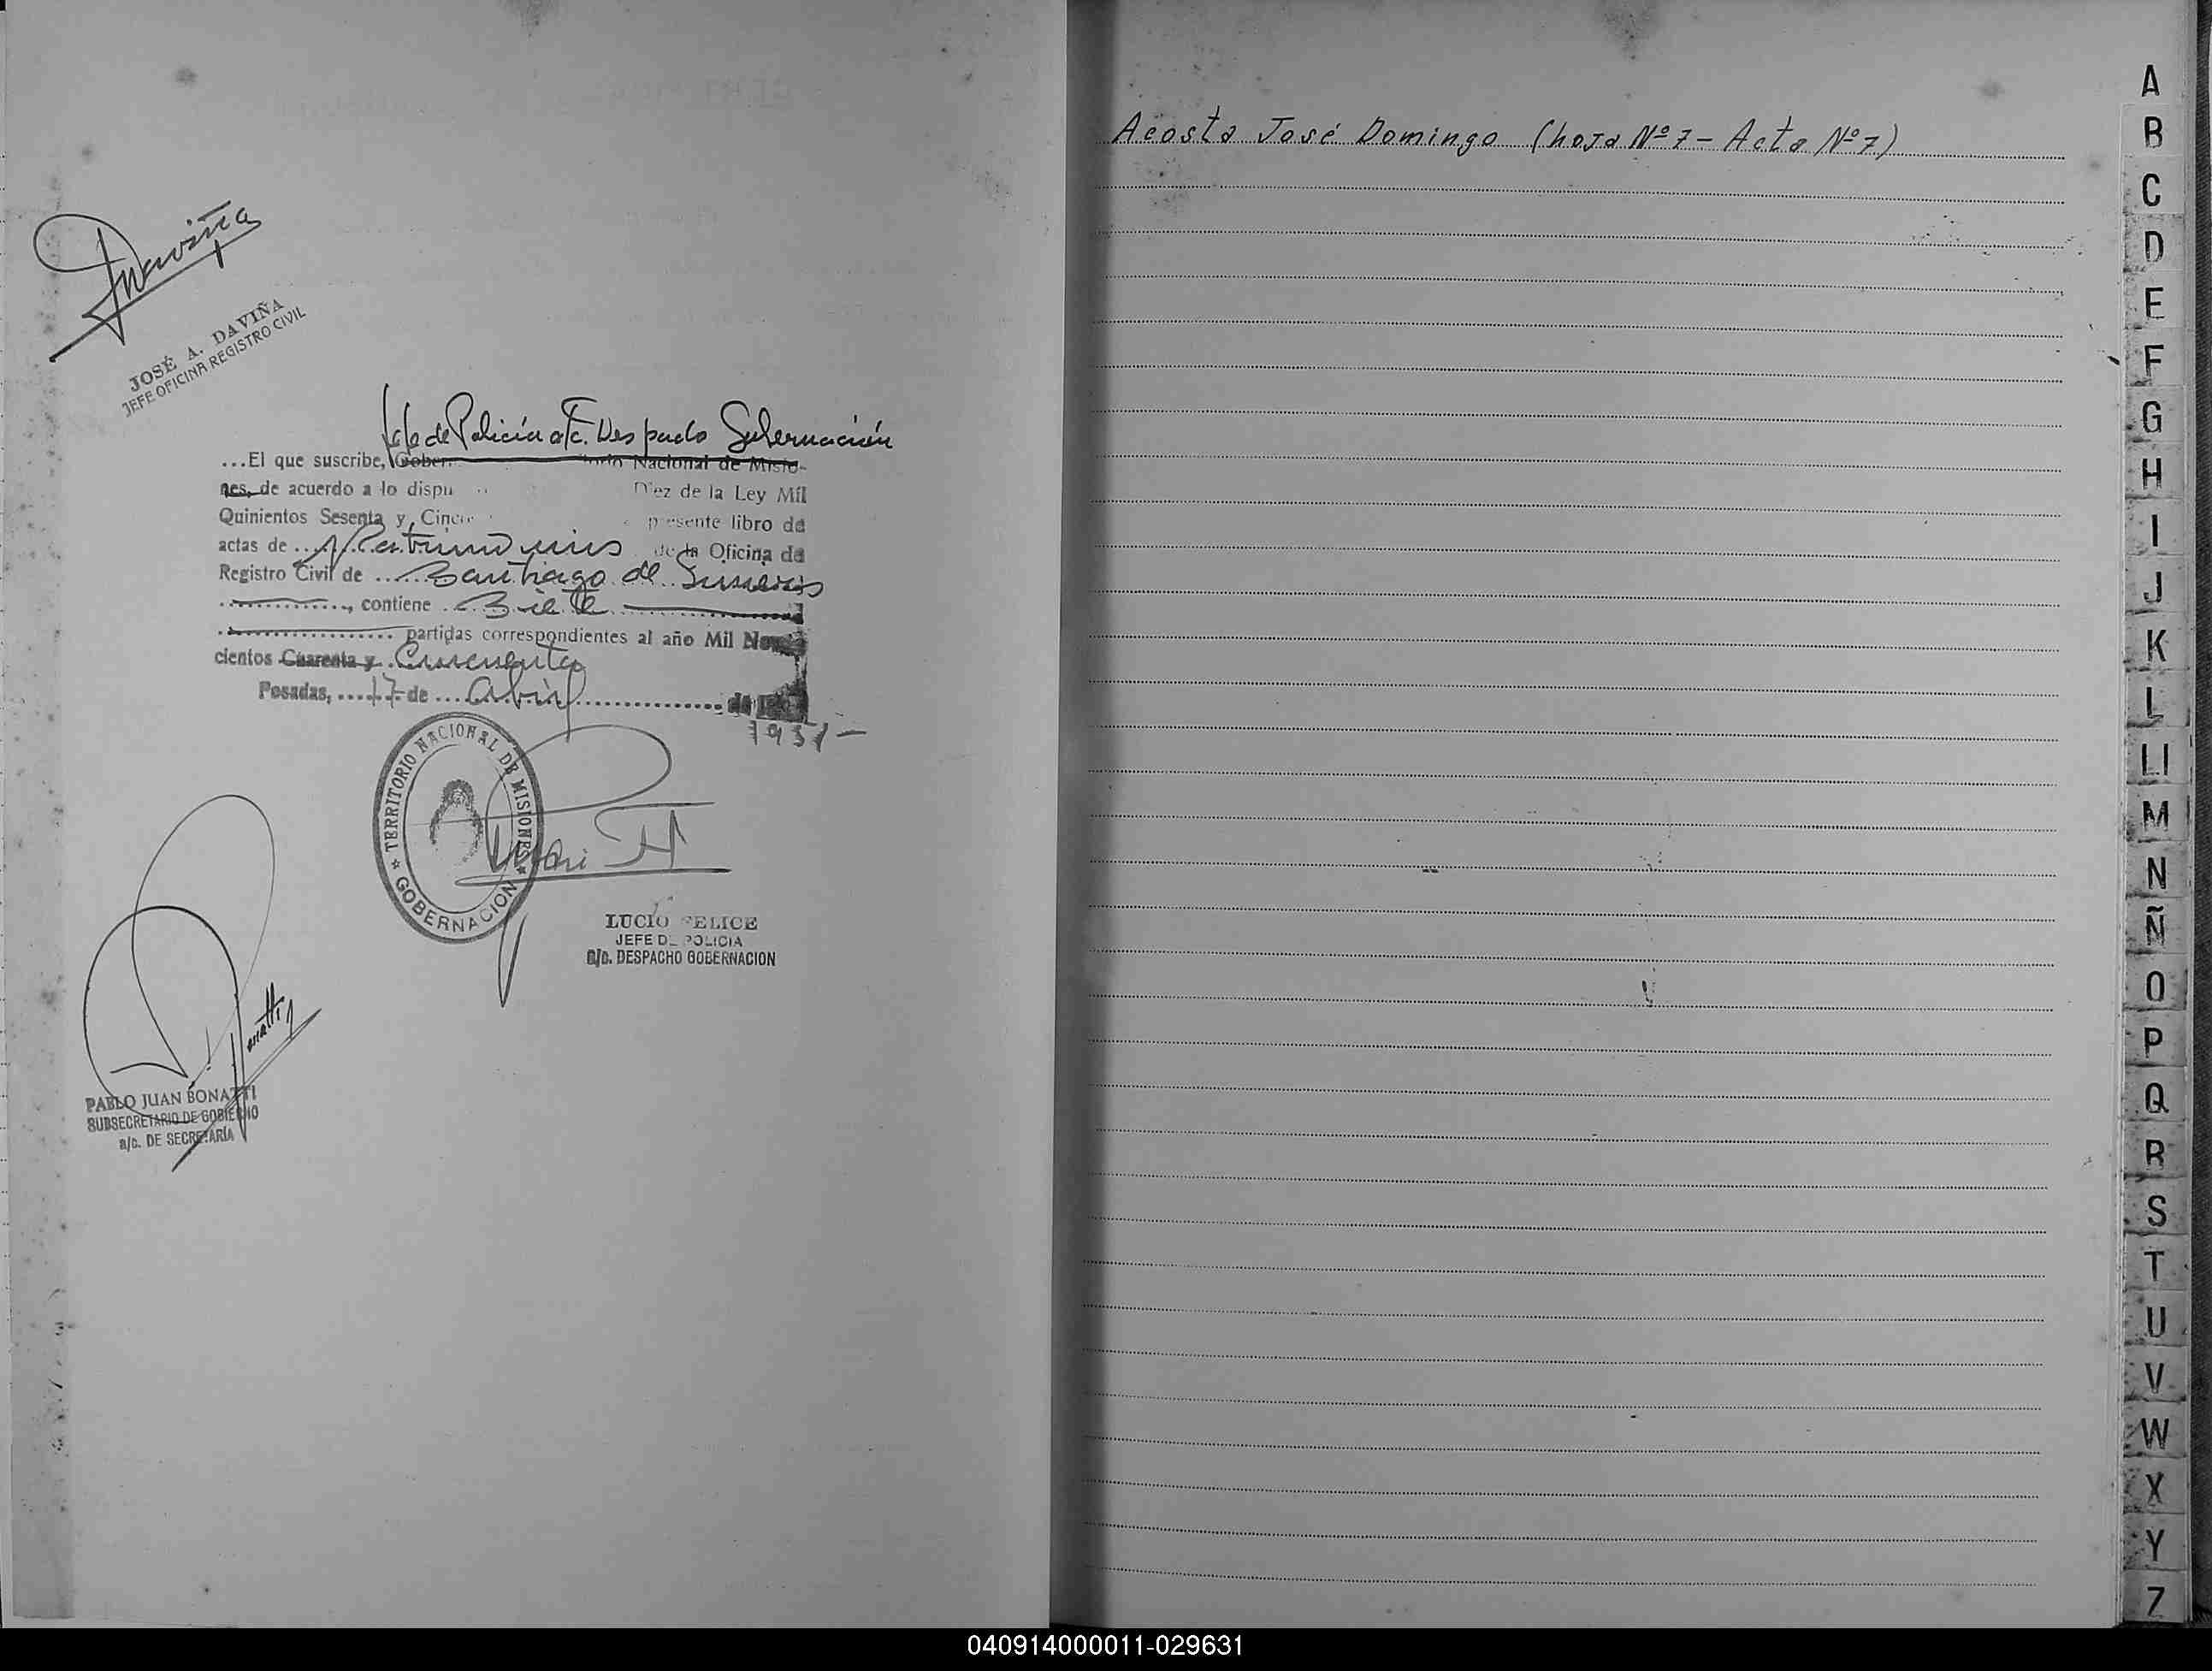 Daviña
JOSÉ A. DAVIÑA
JEFE OFICINA REGISTRO CIVIL
Jefe de Policía a/c. Despacho Gobernación
...El que suscribe, Gober torio Nacional de Misio-
nes, de acuerdo a lo dispu Diez de la Ley Mil
Quinientos Sesenta y Cinco presente libro de
actas de ... Matrimonios de la Oficina de
Registro Civil de ... Santiago de Liniers
............, contiene ... Siete ............
............ partidas correspondientes al año Mil Nove-
cientos Cuarenta y Cincuenta
Posadas, .... 17 de ... Abril ............ de
1951 —
★ TERRITORIO NACIONAL DE MISIONES ★
GOBERNACION
LUCIO FELICE
JEFE DE POLICIA
a/c. DESPACHO GOBERNACION
Bonatti
PABLO JUAN BONATTI
SUBSECRETARIO DE GOBIERNO
a/c. DE SECRETARÍA
Acosta José Domingo (hoja Nº 7 - Acta Nº 7)
A
B
C
D
E
F
G
H
I
J
K
L
Ll
M
N
Ñ
O
P
Q
R
S
T
U
V
W
X
Y
Z
040914000011-029631